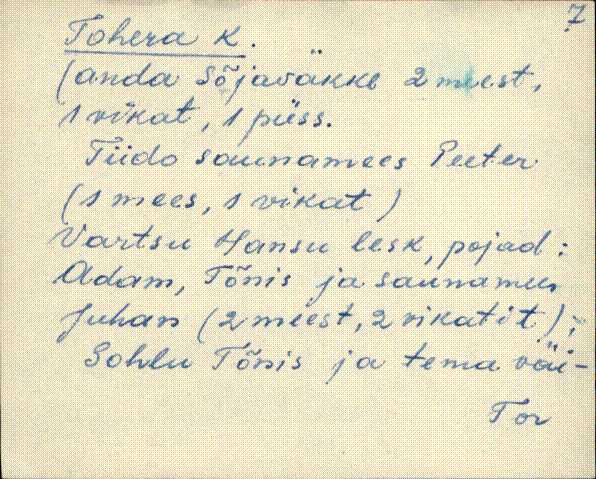 7
Tohera K.
(anda Sõjaväkke 2 meest,
1 vikat, 1 püss.
Tiido saunamees Peeter
(1 mees, 1 vikat)
Vartsu Hansu lesk, pojad:
Adam, Tõnis ja saunamees
Juhan (2 meest, 2 vikatit);
Sohlu Tõnis ja tema väi-
Tor